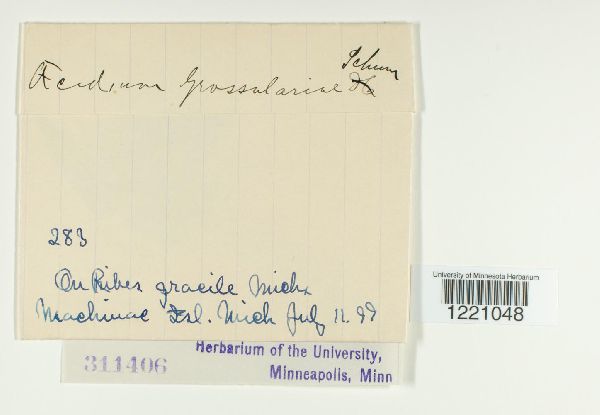 Schum
Aecidium Grossulariae
283
On Ribes gracile Michx
Machinac Isl. Mich July 11. 99
University of Minnesota Herbarium
1221048
Herbarium of the University,
311406 Minneapolis, Minn